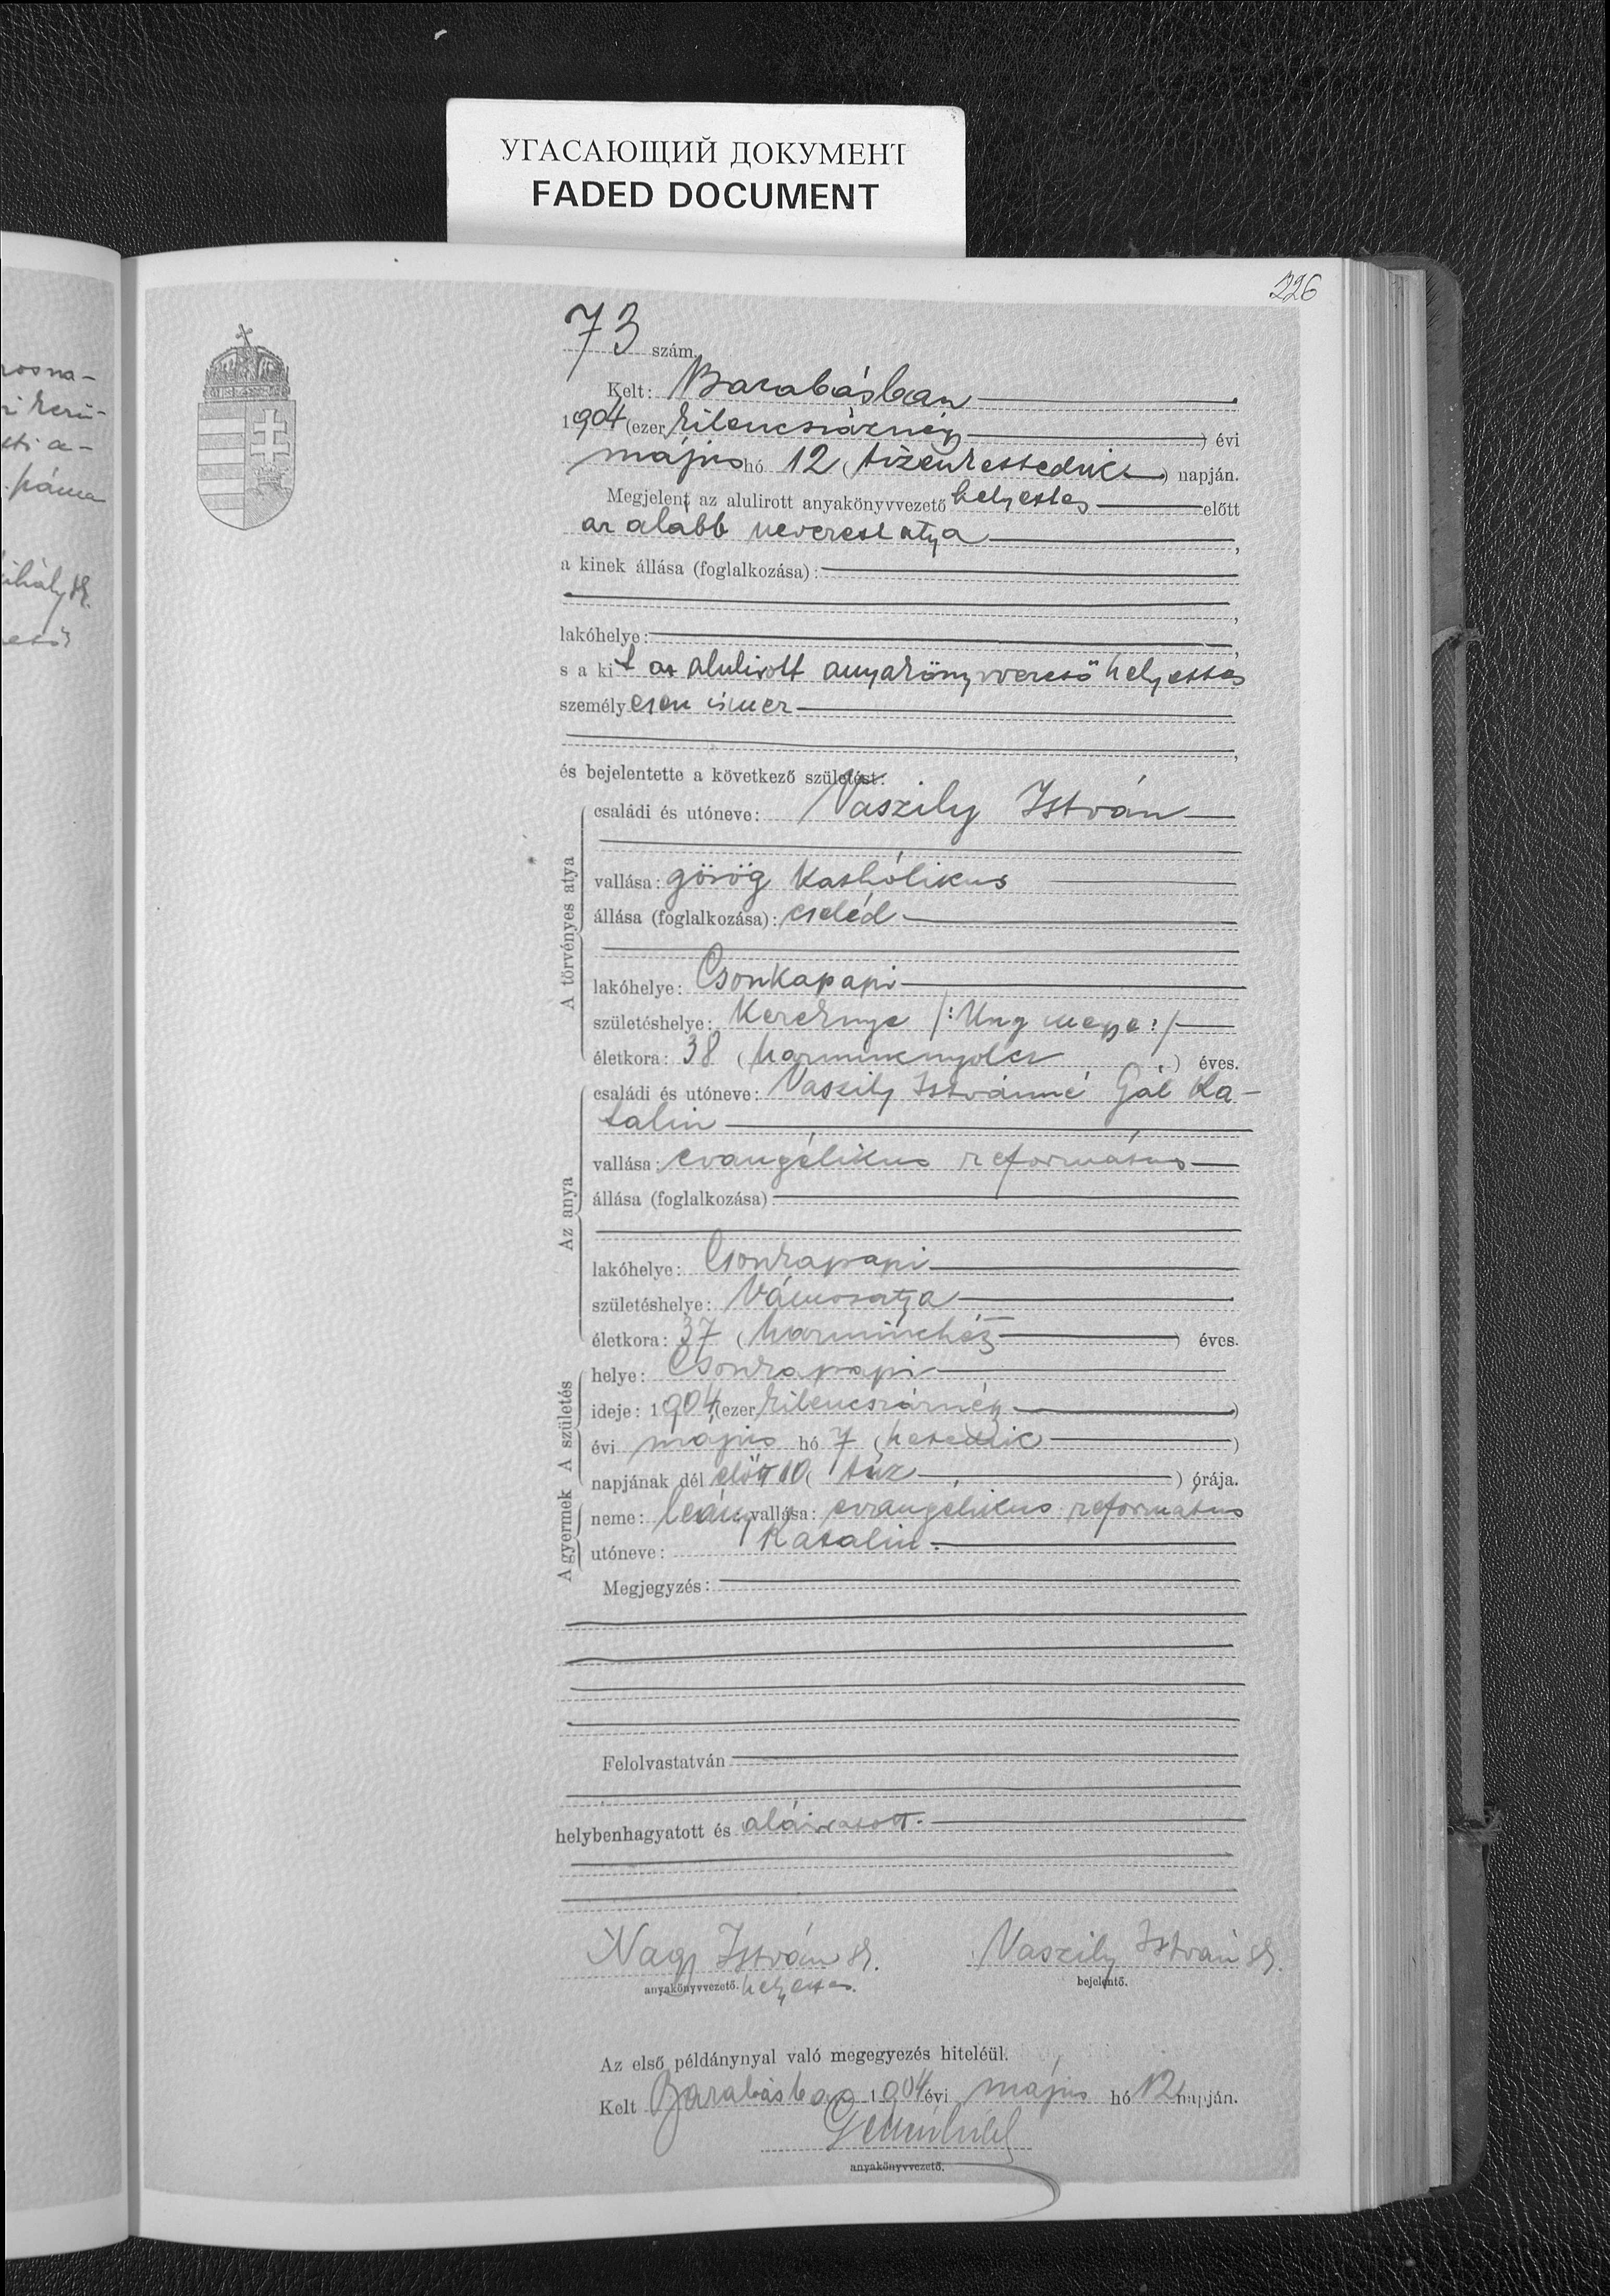 УГАСАЮЩИЙ ДОКУМЕНТ
FADED DOCUMENT
226
73 szám.
Kelt: Barabásban
1904 (ezer kilencszáznégy) évi
május hó 12 (tizenkettedik) napján.
Megjelent az alulirott anyakönyvvezető helyettes előtt
az alább nevezett atya,
a kinek állása (foglalkozása):
lakóhelye:
s a kit az alulirott anyakönyvvezető helyettes
személyesen ismer
és bejelentette a következő születést:
A törvényes atya
családi és utóneve: Vaszily István
vallása: görög katholikus
állása (foglalkozása): cseléd
lakóhelye: Csonkapapi
születéshelye: Kereknye /: Ung megye :/
életkora: 38 (harmincnyolcz) éves.
Az anya
családi és utóneve: Vaszily Istvánné Gál Ka-
talin
vallása: evangélikus református
állása (foglalkozása):
lakóhelye: Csonkapapi
születéshelye: Vámosatya
életkora: 37 (harminchét) éves.
A születés
helye: Csonkapapi
ideje: 1904 (ezer kilencszáznégy)
évi május hó 7 (hetedik)
napjának dél előtt 10 (tíz) órája.
A gyermek
neme: leány, vallása: evangélikus református
utóneve: Katalin.
Megjegyzés:
Felolvastatván
helybenhagyatott és aláiratott.
Nagy István sk. Vaszily István sk.
anyakönyvvezető. helyettes. bejelentő.
Az első példánynyal való megegyezés hiteléül.
Kelt Barabásban 1904 évi május hó 12 napján.
anyakönyvvezető.